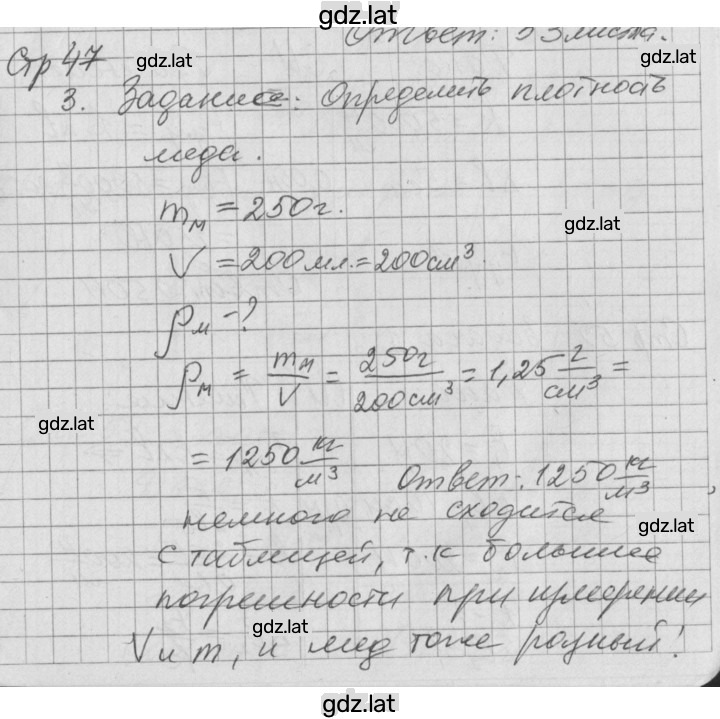 gdz.lat
Ответ: 53 листа.
Стр 47 gdz.lat gdz.lat
3. Задание: Определить плотность
меда.
mм = 250г. gdz.lat
V = 200мл. = 200см³
ρм -? gdz.lat
ρм = mм/V = 250г/200см³ = 1,25 г/см³ =
gdz.lat
= 1250 кг/м³ Ответ: 1250 кг/м³,
немного не сходится gdz.lat
с таблицей, т.к большие
погрешности при измерении
gdz.lat
V и m, и мед тоже разный!
gdz.lat